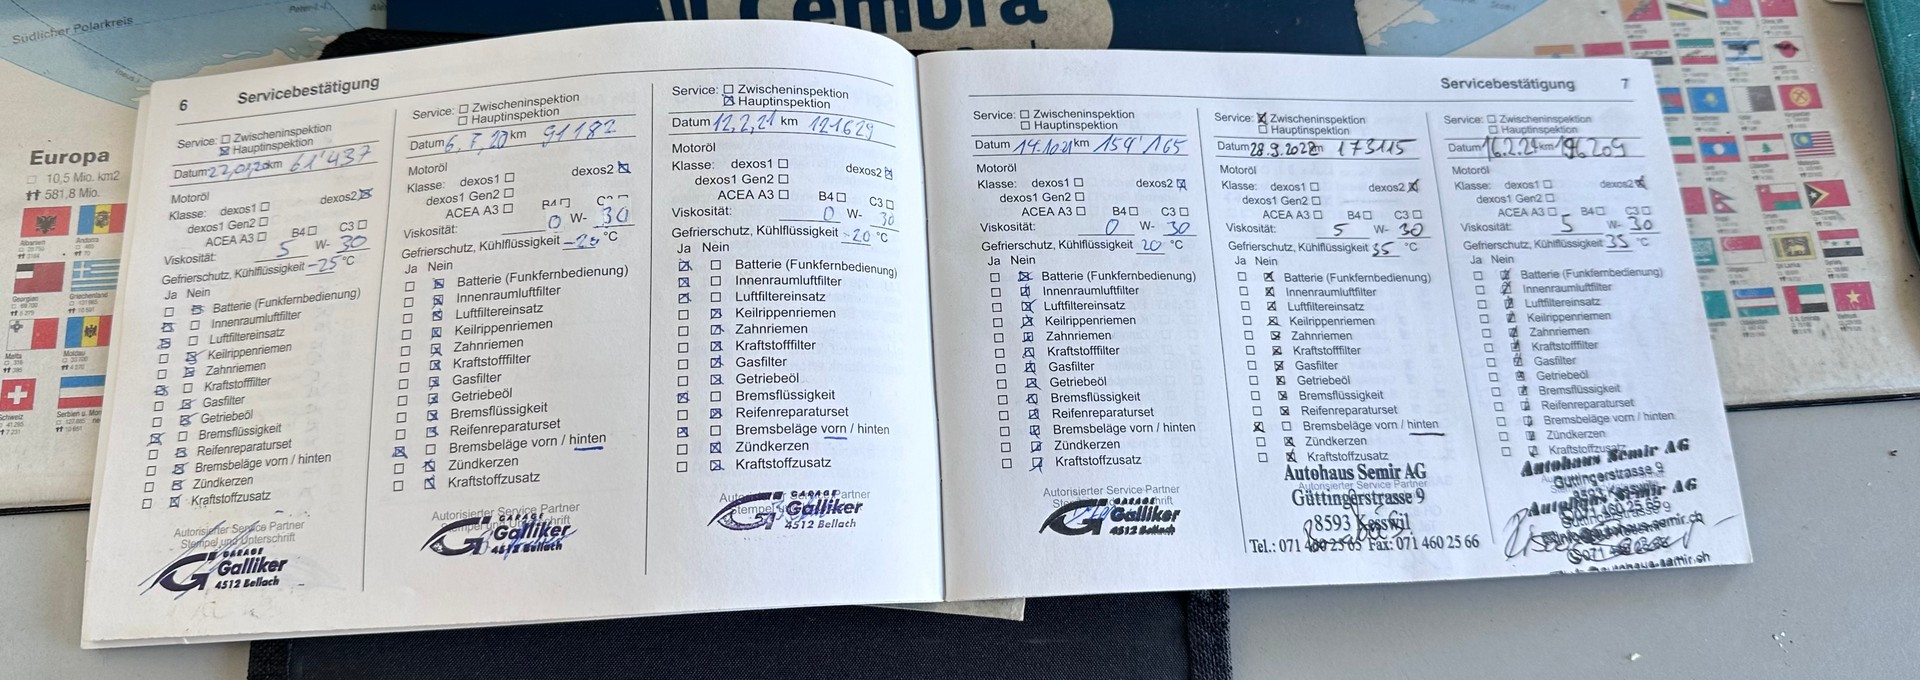 Südlicher Polarkreis
Cembra
Europa
10,5 Mio. km2
581,8 Mio.
Albanien
Andorra
Georgien
Griechenland
Malta
Moldau
Schweiz
6
Servicebestätigung
Service: Zwischeninspektion
Hauptinspektion
Datum 22,01,20 km 61'437
Motoröl
Klasse: dexos1 dexos2
dexos1 Gen2
ACEA A3 B4 C3
Viskosität: 5 W- 30
Gefrierschutz, Kühlflüssigkeit -25 °C
Ja Nein
Batterie (Funkfernbedienung)
Innenraumluftfilter
Luftfiltereinsatz
Keilrippenriemen
Zahnriemen
Kraftstofffilter
Gasfilter
Getriebeöl
Bremsflüssigkeit
Reifenreparaturset
Bremsbeläge vorn / hinten
Zündkerzen
Kraftstoffzusatz
Autorisierter Service Partner
Stempel und Unterschrift
GARAGE
Galliker
4512 Bellach
Service: Zwischeninspektion
Hauptinspektion
Datum 6,7,20 km 91182
Motoröl
Klasse: dexos1 dexos2
dexos1 Gen2
ACEA A3 B4 C3
Viskosität: 0 W- 30
Gefrierschutz, Kühlflüssigkeit °C
Ja Nein
Batterie (Funkfernbedienung)
Innenraumluftfilter
Luftfiltereinsatz
Keilrippenriemen
Zahnriemen
Kraftstofffilter
Gasfilter
Getriebeöl
Bremsflüssigkeit
Reifenreparaturset
Bremsbeläge vorn / hinten
Zündkerzen
Kraftstoffzusatz
Autorisierter Service Partner
GARAGE
Galliker
4512 Bellach
Service: Zwischeninspektion
Hauptinspektion
Datum 12,2,21 km 121629
Motoröl
Klasse: dexos1 dexos2
dexos1 Gen2
ACEA A3 B4 C3
Viskosität: 0 W- 30
Gefrierschutz, Kühlflüssigkeit -20 °C
Ja Nein
Batterie (Funkfernbedienung)
Innenraumluftfilter
Luftfiltereinsatz
Keilrippenriemen
Zahnriemen
Kraftstofffilter
Gasfilter
Getriebeöl
Bremsflüssigkeit
Reifenreparaturset
Bremsbeläge vorn / hinten
Zündkerzen
Kraftstoffzusatz
GARAGE
Galliker
4512 Bellach
Servicebestätigung
7
Service: Zwischeninspektion
Hauptinspektion
Datum 14.1021 km 154'165
Motoröl
Klasse: dexos1 dexos2
dexos1 Gen2
ACEA A3 B4 C3
Viskosität: 0 W- 30
Gefrierschutz, Kühlflüssigkeit 20 °C
Ja Nein
Batterie (Funkfernbedienung)
Innenraumluftfilter
Luftfiltereinsatz
Keilrippenriemen
Zahnriemen
Kraftstofffilter
Gasfilter
Getriebeöl
Bremsflüssigkeit
Reifenreparaturset
Bremsbeläge vorn / hinten
Zündkerzen
Kraftstoffzusatz
Autorisierter Service Partner
GARAGE
Galliker
4512 Bellach
Service: Zwischeninspektion
Hauptinspektion
Datum 28.9.2022 km 173115
Motoröl
Klasse: dexos1 dexos2
dexos1 Gen2
ACEA A3 B4 C3
Viskosität: 5 W- 30
Gefrierschutz, Kühlflüssigkeit 35 °C
Ja Nein
Batterie (Funkfernbedienung)
Innenraumluftfilter
Luftfiltereinsatz
Keilrippenriemen
Zahnriemen
Kraftstofffilter
Gasfilter
Getriebeöl
Bremsflüssigkeit
Reifenreparaturset
Bremsbeläge vorn / hinten
Zündkerzen
Kraftstoffzusatz
Autohaus Semir AG
Autorisierter Service Partner
Güttingerstrasse 9
8593 Kesswil
Tel.: 071 460 25 65 Fax: 071 460 25 66
Service: Zwischeninspektion
Hauptinspektion
Datum 16.2.24 km 196209
Motoröl
Klasse: dexos1 dexos2
dexos1 Gen2
ACEA A3 B4 C3
Viskosität: 5 W- 30
Gefrierschutz, Kühlflüssigkeit 35 °C
Ja Nein
Batterie (Funkfernbedienung)
Innenraumluftfilter
Luftfiltereinsatz
Keilrippenriemen
Zahnriemen
Kraftstofffilter
Gasfilter
Getriebeöl
Bremsflüssigkeit
Reifenreparaturset
Bremsbeläge vorn / hinten
Zündkerzen
Kraftstoffzusatz
Autohaus Semir AG
Güttingerstrasse 9